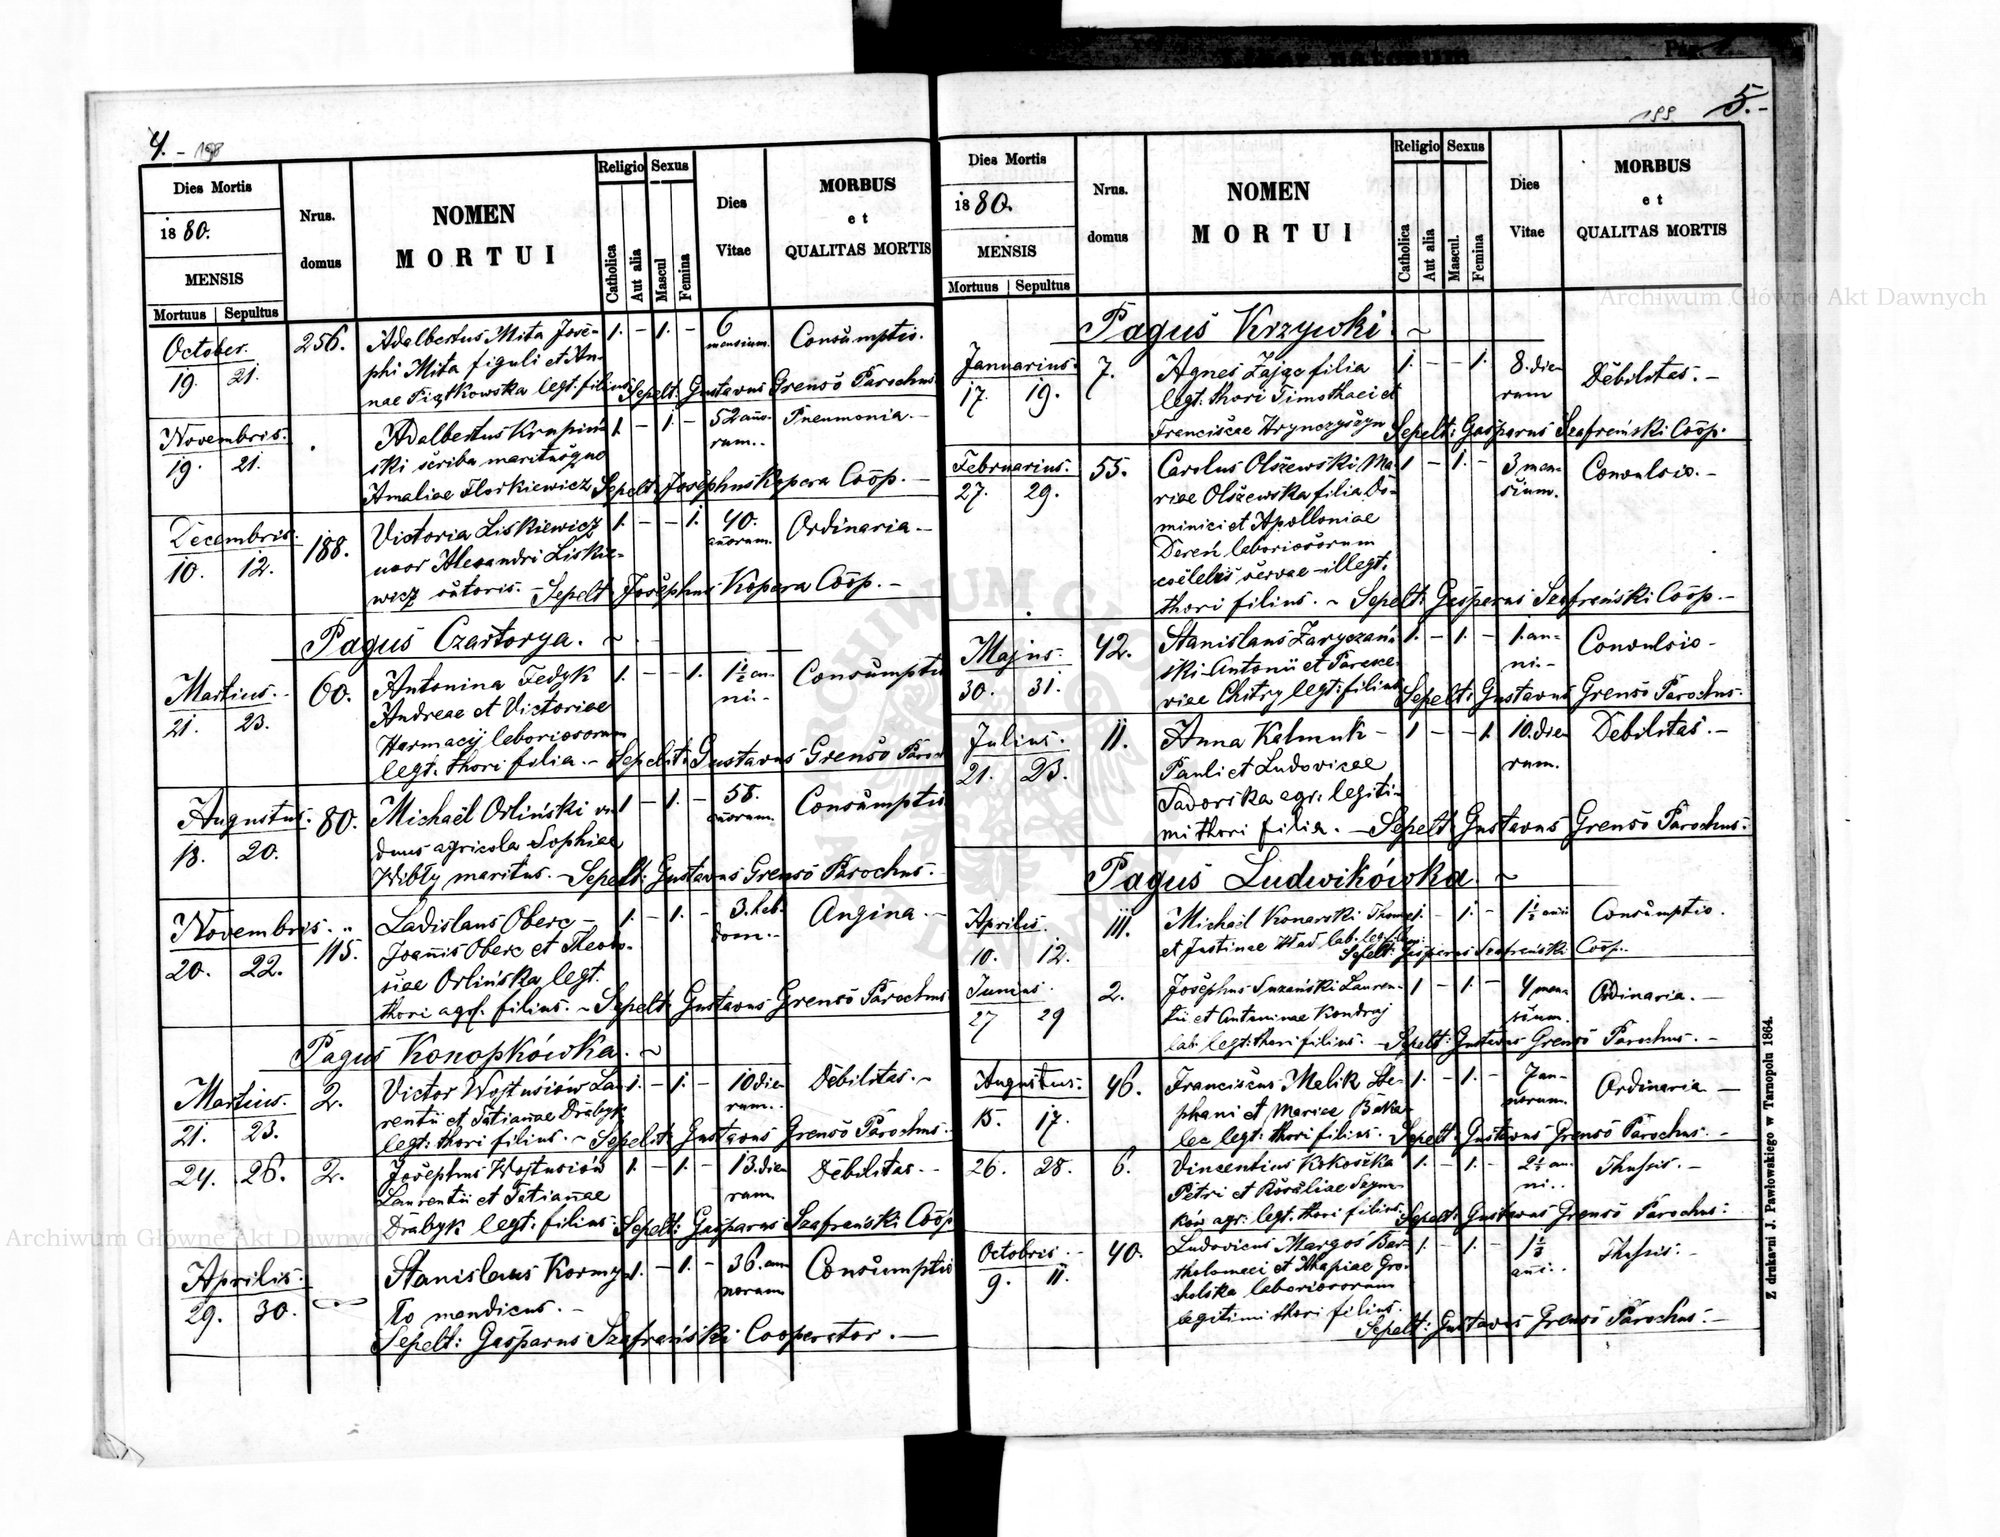 4. - 198
Dies Mortis
1880.
MENSIS
Mortuus | Sepultus
Nrus.
domus
NOMEN
MORTUI
Religio
Catholica
Aut alia
Sexus
Mascul
Femina
Dies
Vitae
MORBUS
et
QUALITAS MORTIS
October. 256. Adalbertus Mita Jose- 1. - 1. - 6 Consumptio.
19. 21. phi Mita figuli et An- mensium.
nae Piątkowska legt. filius Sepelt: Gustavus Grenso Parochus.
Novembris. Adalbertus Krupiń- 1. - 1. - 52 año- Pneumonia. -
19. 21. ski scriba maritus quo rum..
Amaliae Florkiewicz Sepelt: Josephus Kopera Coop. -
Decembris. 188. Victoria Liskiewicz 1. - - 1. 40. Ordinaria -
10. 12. uxor Alexandri Liskie- añorum.
wicz sutoris. - Sepelt Josephus Kopera Coop. -
Pagus Czartorya. ~
Martius. - 60. Antonina Fedyk 1. - - 1. 1½ an- Consumptio
21. 23. Andreae et Victoriae ni -
Harmacij laboriosorum
legt. thori filia. - Sepelit: Gustavus Grenso Paroch
Augustus. 80. Michaël Orliński vi- 1 - 1. - 58. Consumptio.
18. 20. duus agricola Sophiae añorum.
Wibły maritus. - Sepelt: Gustavus Grenso Parochus. -
Novembris. 115. Ladislaus Oberc - 1. - 1. - 3. heb- Angina. -
20. 22. Joañis Oberc et Theodo- dom. -
siae Orlińska legt.
thori agr. filius. ~ Sepelt: Gustavus Grenso Parochus
Pagus Konopkówka. ~
Martius. 2. Victor Wojtusiów Lau- 1. - 1. - 10 die- Debilitas. ~
21. 23. rentii et Tatianae Drabyk rum..
legt: thori filius. ~ Sepelit: Gustavus Grenso Parochus. -
24. 26. 2. Josephus Wojtusiów 1. - 1. - 13. die- Debilitas. -
Laurentii et Tatianae rum
Drabyk legt. filius. Sepelt: Gasparus Szafrański Coop
Aprilis. Stanislaus Kormy- 1. - 1. - 36. an- Consumptio
29. 30. to mendicus. - norum
Sepelt: Gasparus Szafrański Cooperator. -
199 5. -
Dies Mortis
1880.
MENSIS
Mortuus | Sepultus
Nrus.
domus
NOMEN
MORTUI
Religio
Catholica
Aut alia
Sexus
Mascul.
Femina
Dies
Vitae
MORBUS
et
QUALITAS MORTIS
Pagus Krzywki. ~
Januarius. 7. Agnes Zając filia 1. - - 1. 8. die- Debilitas. -
17. 19. legt. thori Timothaei et rum
Franciscae Hrynczyszyn Sepelt: Gasparus Szafrański Coop.
Februarius. 55. Carolus Olszewski Ma- 1 - 1. - 3 men- Convulsio. -
27. 29. riae Olszewska filia Do- sium.
minici et Apolloniae
Dereń laboriosorum
coelebis servae - illegt.
thori filius. ~ Sepelt: Gasparus Szafrański Coop. -
Majus. 42. Stanislaus Zaryczań- 1. - 1. - 1. an- Convulsio -
30. 31. ski Antonii et Parasce- ni. -
viae Chitry legt: filius Sepelt: Gustavus Grenso Parochus.
Julius. 11. Anna Kalmuk - 1 - - 1. 10. die- Debilitas. -
21. 23. Pauli et Ludovicae rum.
Sadorska agr: legiti-
mi thori filia. - Sepelt: Gustavus Grenso Parochus.
Pagus Ludwikówka. ~
Aprilis. 111. Michaël Konarski Thomae 1. - 1. - 1½ anni Consumptio.
10. 12. et Justinae Wad lab. leg. filius. Sepelt: Gasparus Szafrański Coop.
Junius. 2. Josephus Suzański Lauren- 1 - 1. - 4 men- Ordinaria. -
27 29 tii et Antoninae Kondraj sium.
lab. legt: thori filius. - Sepelt: Gustavus Grenso Parochus. -
Augustus. 46. Franciscus Malik Ste- 1. - 1. - 7 an- Ordinaria -
15. 17. phani et Mariae Baka- norum.
lec legt: thori filius. Sepelt: Gustavus Grenso Parochus. -
26. 28. 6. Vincentius Kokoszka 1. - 1. - 2½ an- Thussis. -
Petri et Rosaliae Szym- ni..
ków agr: legt. thori filius. Sepelt: Gustavus Grenso Parochus:
Octobris. - 40. Ludovicus Margos Bar- 1. - 1. - 1½ Thussis. -
9. 11. tholomaei et Agapiae Gro- añi..
cholska laboriosorum
legitimi thori filius.
Sepelt: Gustavus Grenso Parochus. -
Z drukarni J. Pawłowskiego w Tarnopolu 1864.
Archiwum Główne Akt Dawnych
Archiwum Główne Akt Dawnych